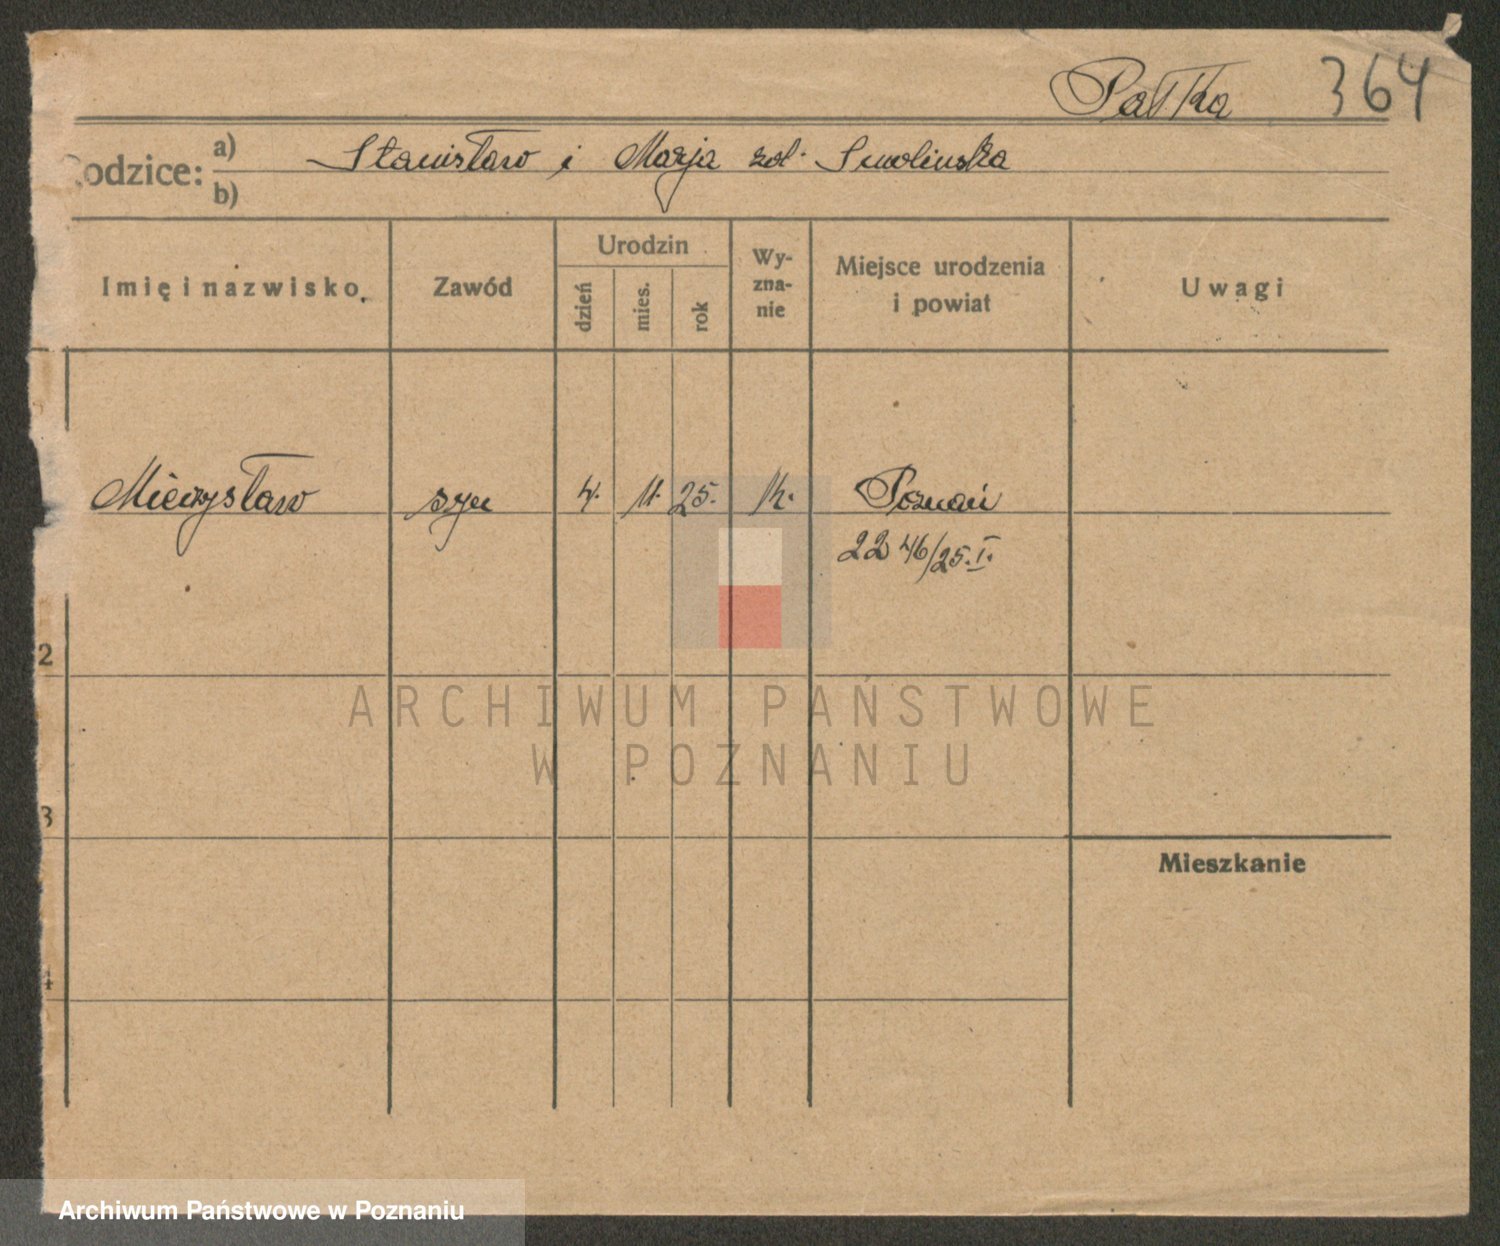 Pałka 364
Rodzice: a) Stanisław i Marja zd. Smolinska
b)
Imię i nazwisko Zawód Urodzin Wyznanie Miejsce urodzenia i powiat Uwagi
dzień mies. rok
Mieczysław syn 4. 11. 25. k. Poznań
2246/25.I.
2
3
4
Mieszkanie
ARCHIWUM PAŃSTWOWE
W POZNANIU
Archiwum Państwowe w Poznaniu